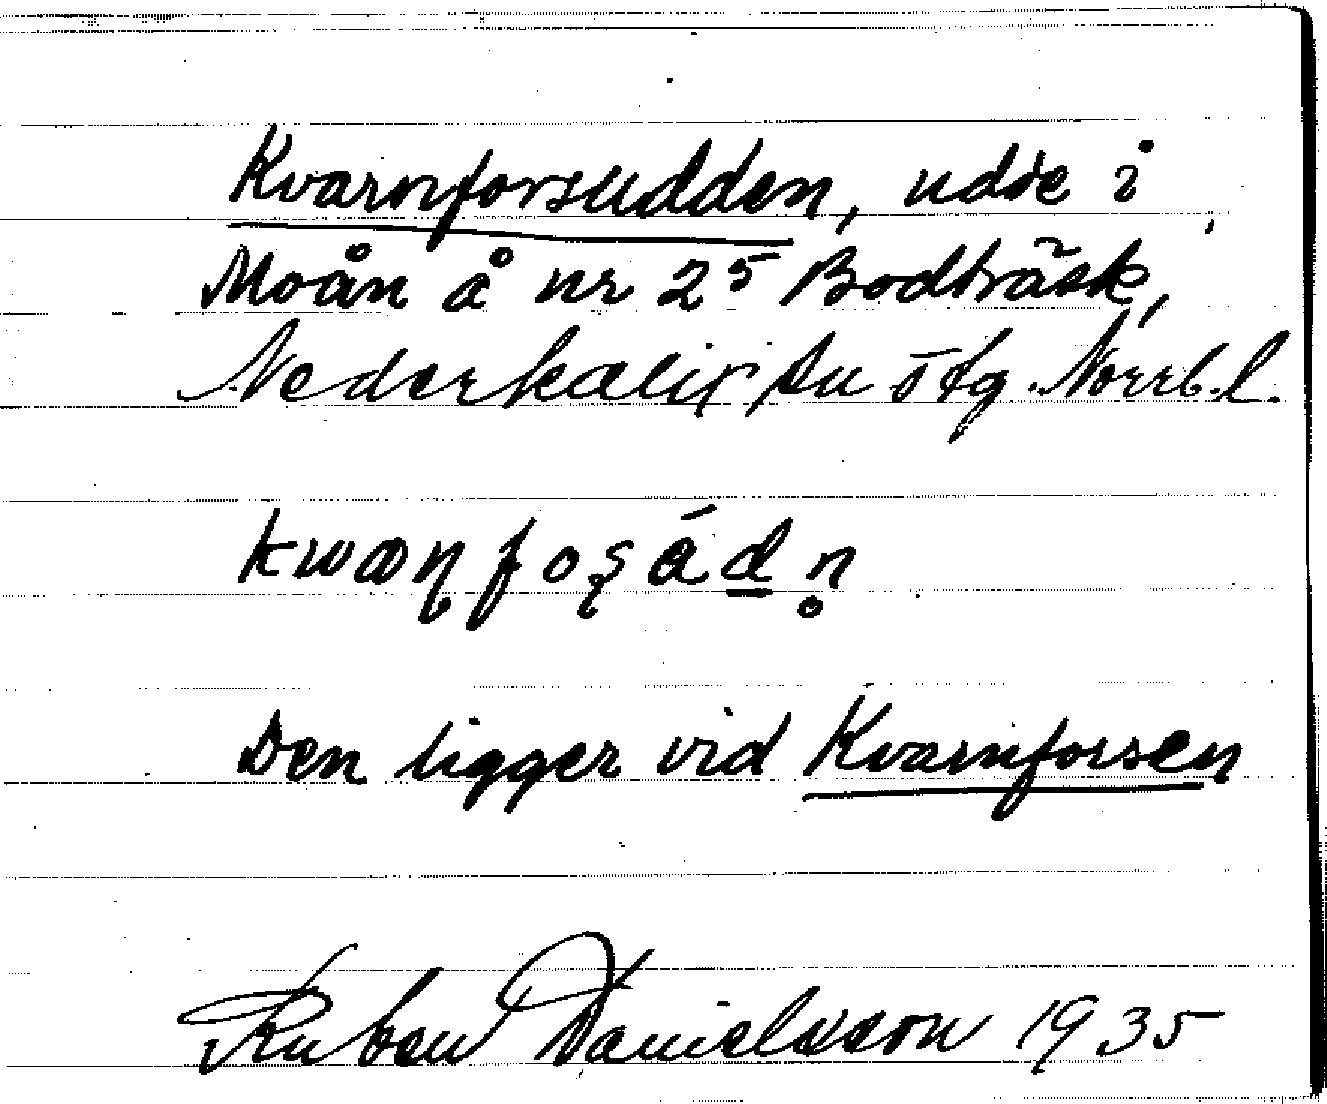 Kvarnforsudden, udde i
Moån å nr 25 Bodträsk,
Nederkalix sn östg. Norrb.l.
kwæɳfoʂád̲n̥
Den ligger vid Kvarnforsen
Ruben Danielsson 1935